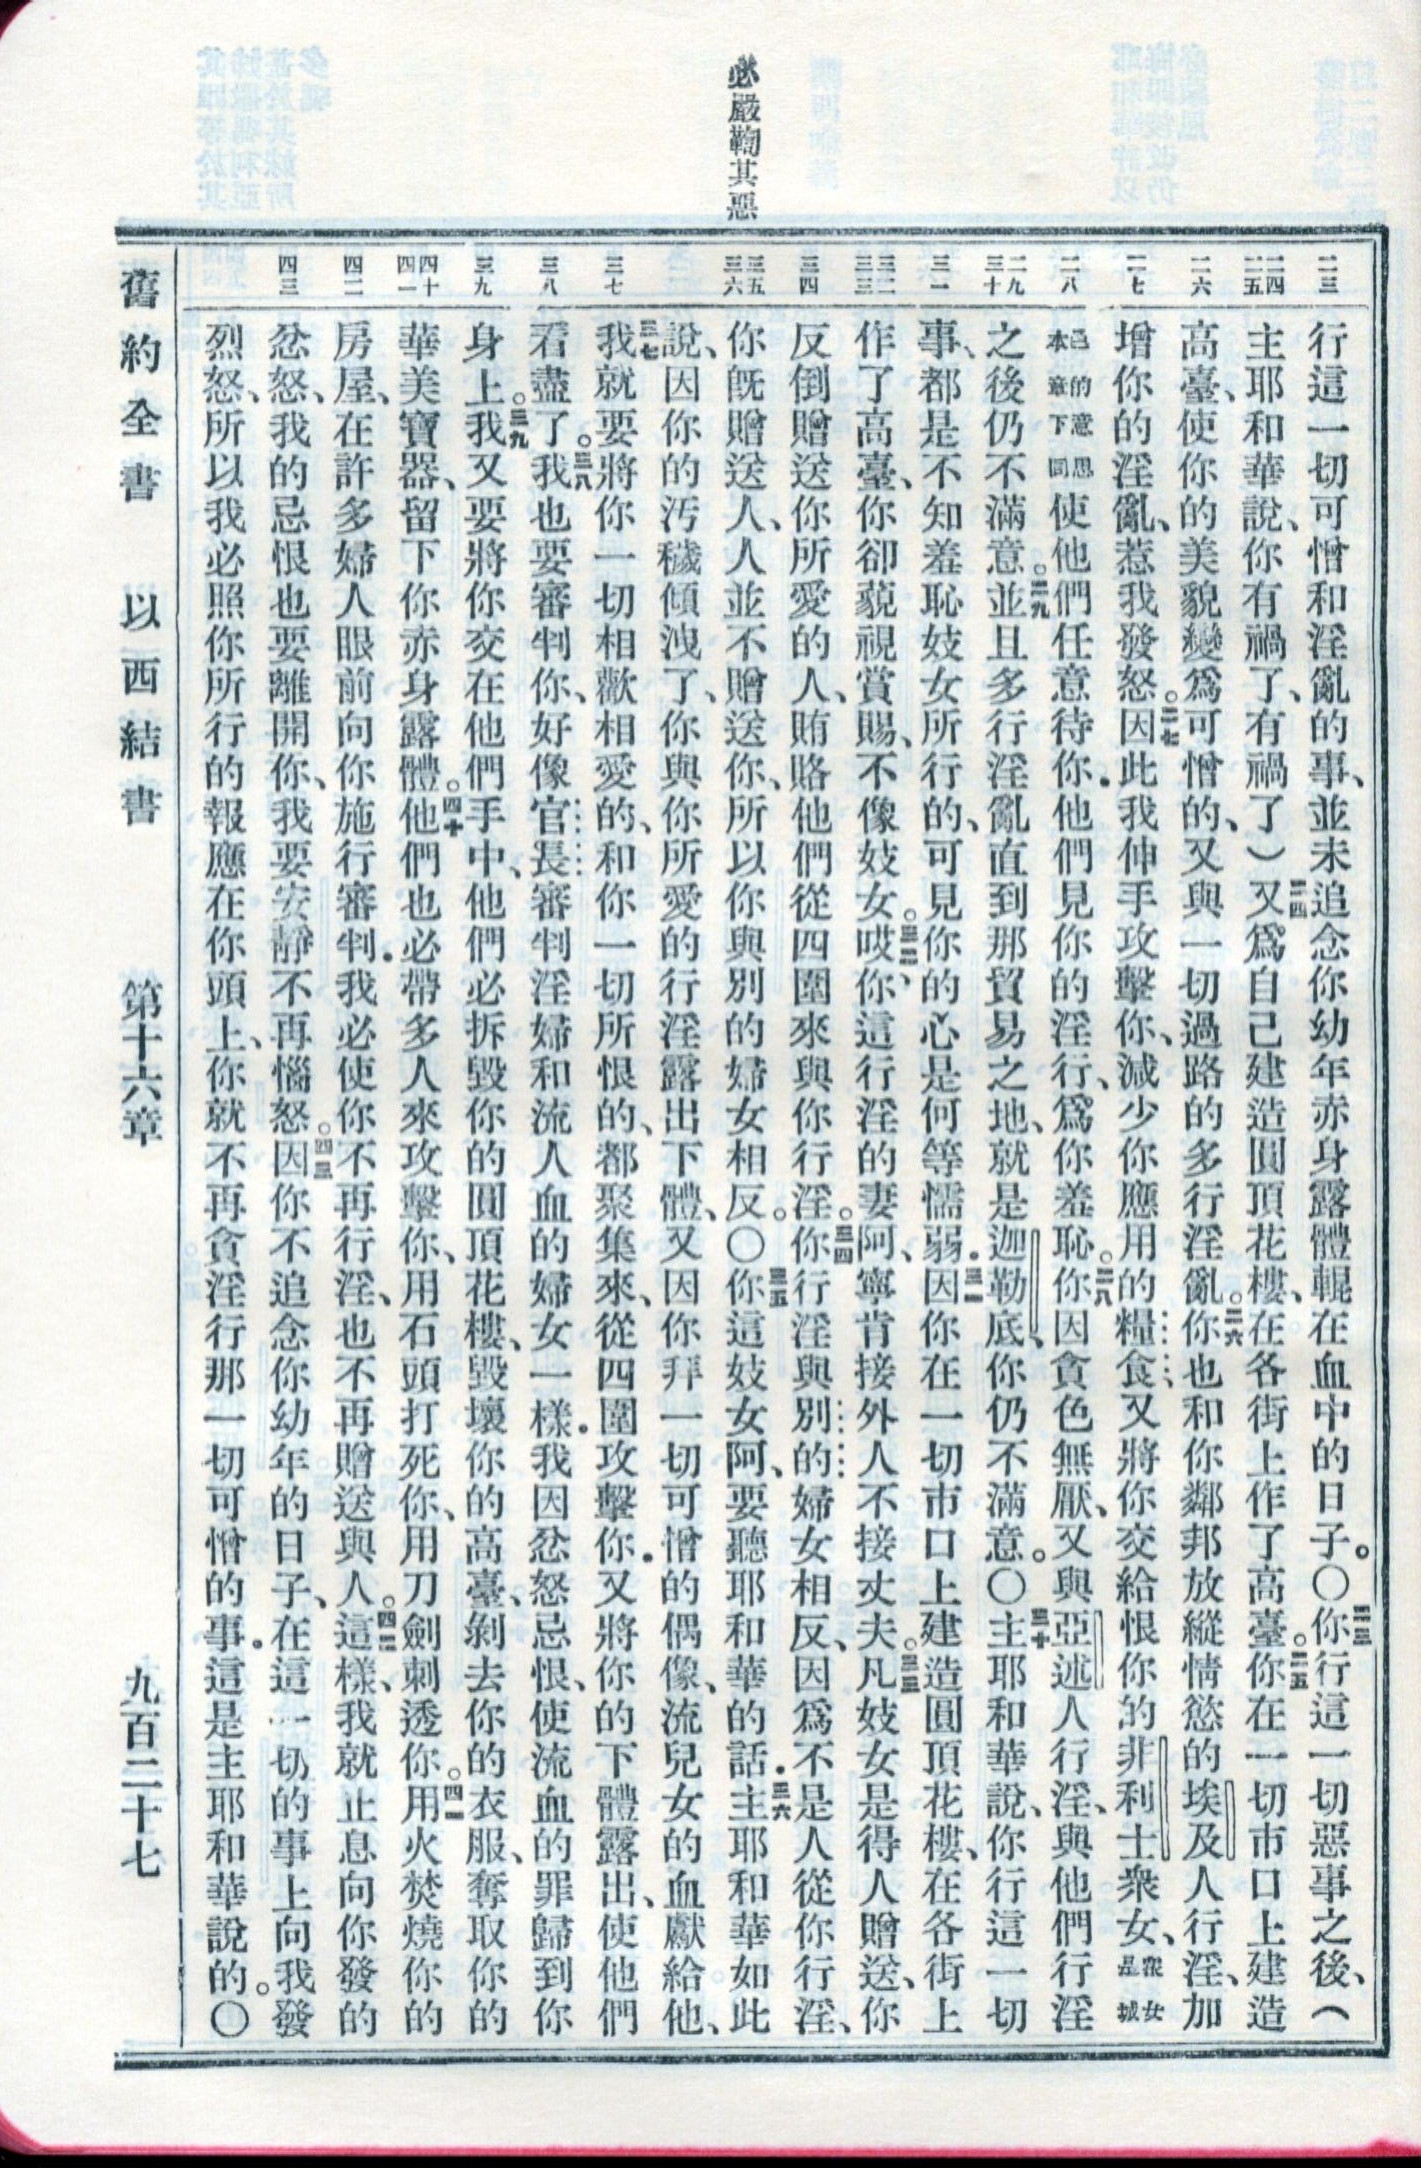 必嚴鞫其惡
二三
行這一切可憎和淫亂的事、並未追念你幼年赤身露體輥在血中的日子。〇二三你行這一切惡事之後、（
二四 二五
主耶和華說、你有禍了、有禍了）二四又爲自己建造圓頂花樓、在各街上作了高臺。二五你在一切市口上建造
二六
高臺、使你的美貌變爲可憎的、又與一切過路的多行淫亂。二六你也和你鄰邦放縱情慾的埃及人行淫、加
二七
增你的淫亂、惹我發怒。二七因此我伸手攻擊你、減少你應用的糧食、又將你交給恨你的非利士衆女、衆女是城
二八
邑的意思本章下同使他們任意待你．他們見你的淫行、爲你羞恥。二八你因貪色無厭、又與亞述人行淫、與他們行淫
二九 三十
之後仍不滿意。二九並且多行淫亂直到那貿易之地、就是迦勒底、你仍不滿意。〇三十主耶和華說、你行這一切
三一
事、都是不知羞恥妓女所行的、可見你的心是何等懦弱．三一因你在一切市口上建造圓頂花樓、在各街上
三二 三三
作了高臺、你卻藐視賞賜、不像妓女。三二哎、你這行淫的妻阿、寧肯接外人不接丈夫。三三凡妓女是得人贈送、你
三四
反倒贈送你所愛的人、賄賂他們從四圍來與你行淫。三四你行淫與別的婦女相反、因爲不是人從你行淫、
三五 三六
你旣贈送人、人並不贈送你、所以你與別的婦女相反。〇三五你這妓女阿、要聽耶和華的話．三六主耶和華如此
說、因你的汚穢傾洩了、你與你所愛的行淫露出下體、又因你拜一切可憎的偶像、流兒女的血獻給他、
三七
三七我就要將你一切相歡相愛的、和你一切所恨的、都聚集來、從四圍攻擊你．又將你的下體露出、使他們
三八
看盡了。三八我也要審判你、好像官長審判淫婦和流人血的婦女一樣．我因忿怒忌恨、使流血的罪歸到你
三九
身上。三九我又要將你交在他們手中、他們必拆毀你的圓頂花樓、毀壞你的高臺、剝去你的衣服、奪取你的
四十 四一
華美寶器、留下你赤身露體。四十他們也必帶多人來攻擊你、用石頭打死你、用刀劍刺透你。四一用火焚燒你的
四二
房屋、在許多婦人眼前向你施行審判．我必使你不再行淫、也不再贈送與人。四二這樣、我就止息向你發的
四三
忿怒、我的忌恨也要離開你、我要安靜不再惱怒。四三因你不追念你幼年的日子、在這一切的事上向我發
烈怒、所以我必照你所行的報應在你頭上、你就不再貪淫行那一切可憎的事．這是主耶和華說的。〇
舊約全書 以西結書 第十六章 九百二十七